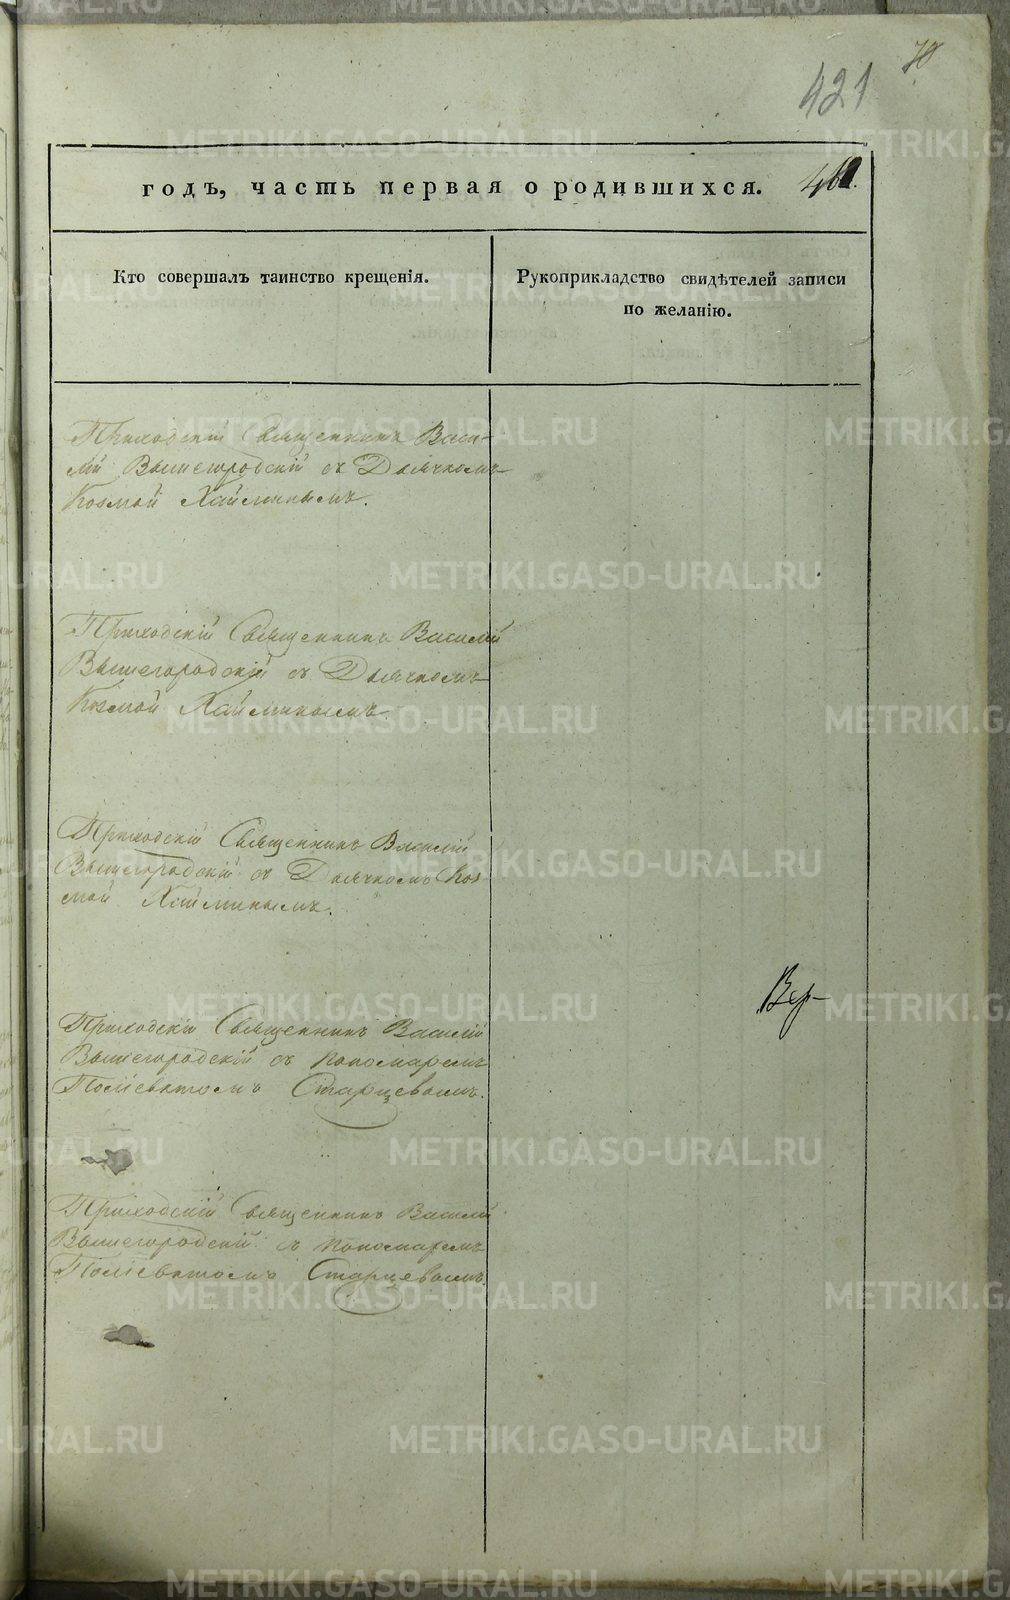 70
421
годъ, часть первая о родившихся.
Кто совершалъ таинство крещенія.
Рукоприкладство свидѣтелей записи
по желанію.
Приходскій Священникъ Васи-
лій Вышегородскій съ Дьячкомъ
Козмой Хайминымъ.
Приходскій Священникъ Василій
Вышегородскій съ Дьячкомъ
Козмой Хайминымъ.
Приходскій Священникъ Василій
Вышегородскій съ Дьячкомъ Коз-
мой Хайминымъ.
Приходскій Священникъ Василій
Вышегородскій съ Пономаремъ
Поліевктомъ Старцевымъ.
Вер-
Приходскій Священникъ Василій
Вышегородскій съ Пономаремъ
Поліевктомъ Старцевымъ.
METRIKI.GASO-URAL.RU